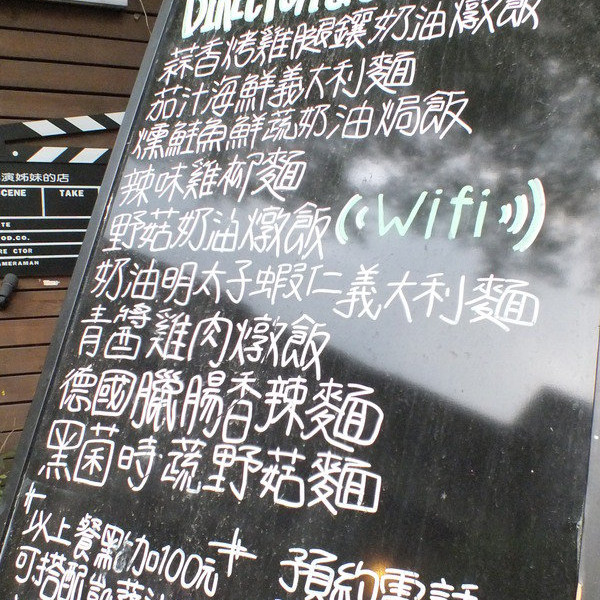 蒜香烤雞腿鑲奶油燉飯
茄汁海鮮義大利麵
燻鮭魚鮮蔬奶油焗飯
辣味雞柳麵
野菇奶油燉飯
Wifi
奶油明太子蝦仁義大利麵
青醬雞肉燉飯
德國臘腸香辣麵
黑菌時蔬野菇麵
以上餐點加100元
可搭配
預約電話
演姊妹的店
SCENE
TAKE